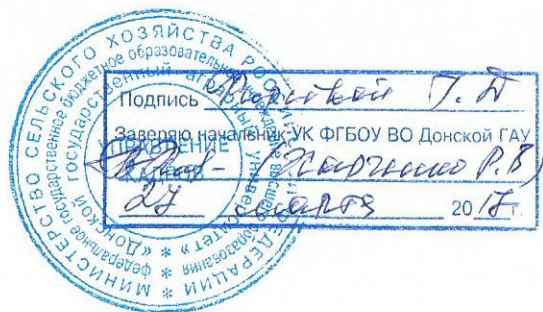 МИНИСТЕРСТВО СЕЛЬСКОГО ХОЗЯЙСТВА РОССИЙСКОЙ ФЕДЕРАЦИИ
федеральное государственное бюджетное образовательное учреждение высшего образования
«Донской государственный аграрный университет»
УПРАВЛЕНИЕ КАДРОВ
Подпись Т. Д
Заверяю начальник УК ФГБОУ ВО Донской ГАУ
Харченко Р. В)
27 марта 2017 г.